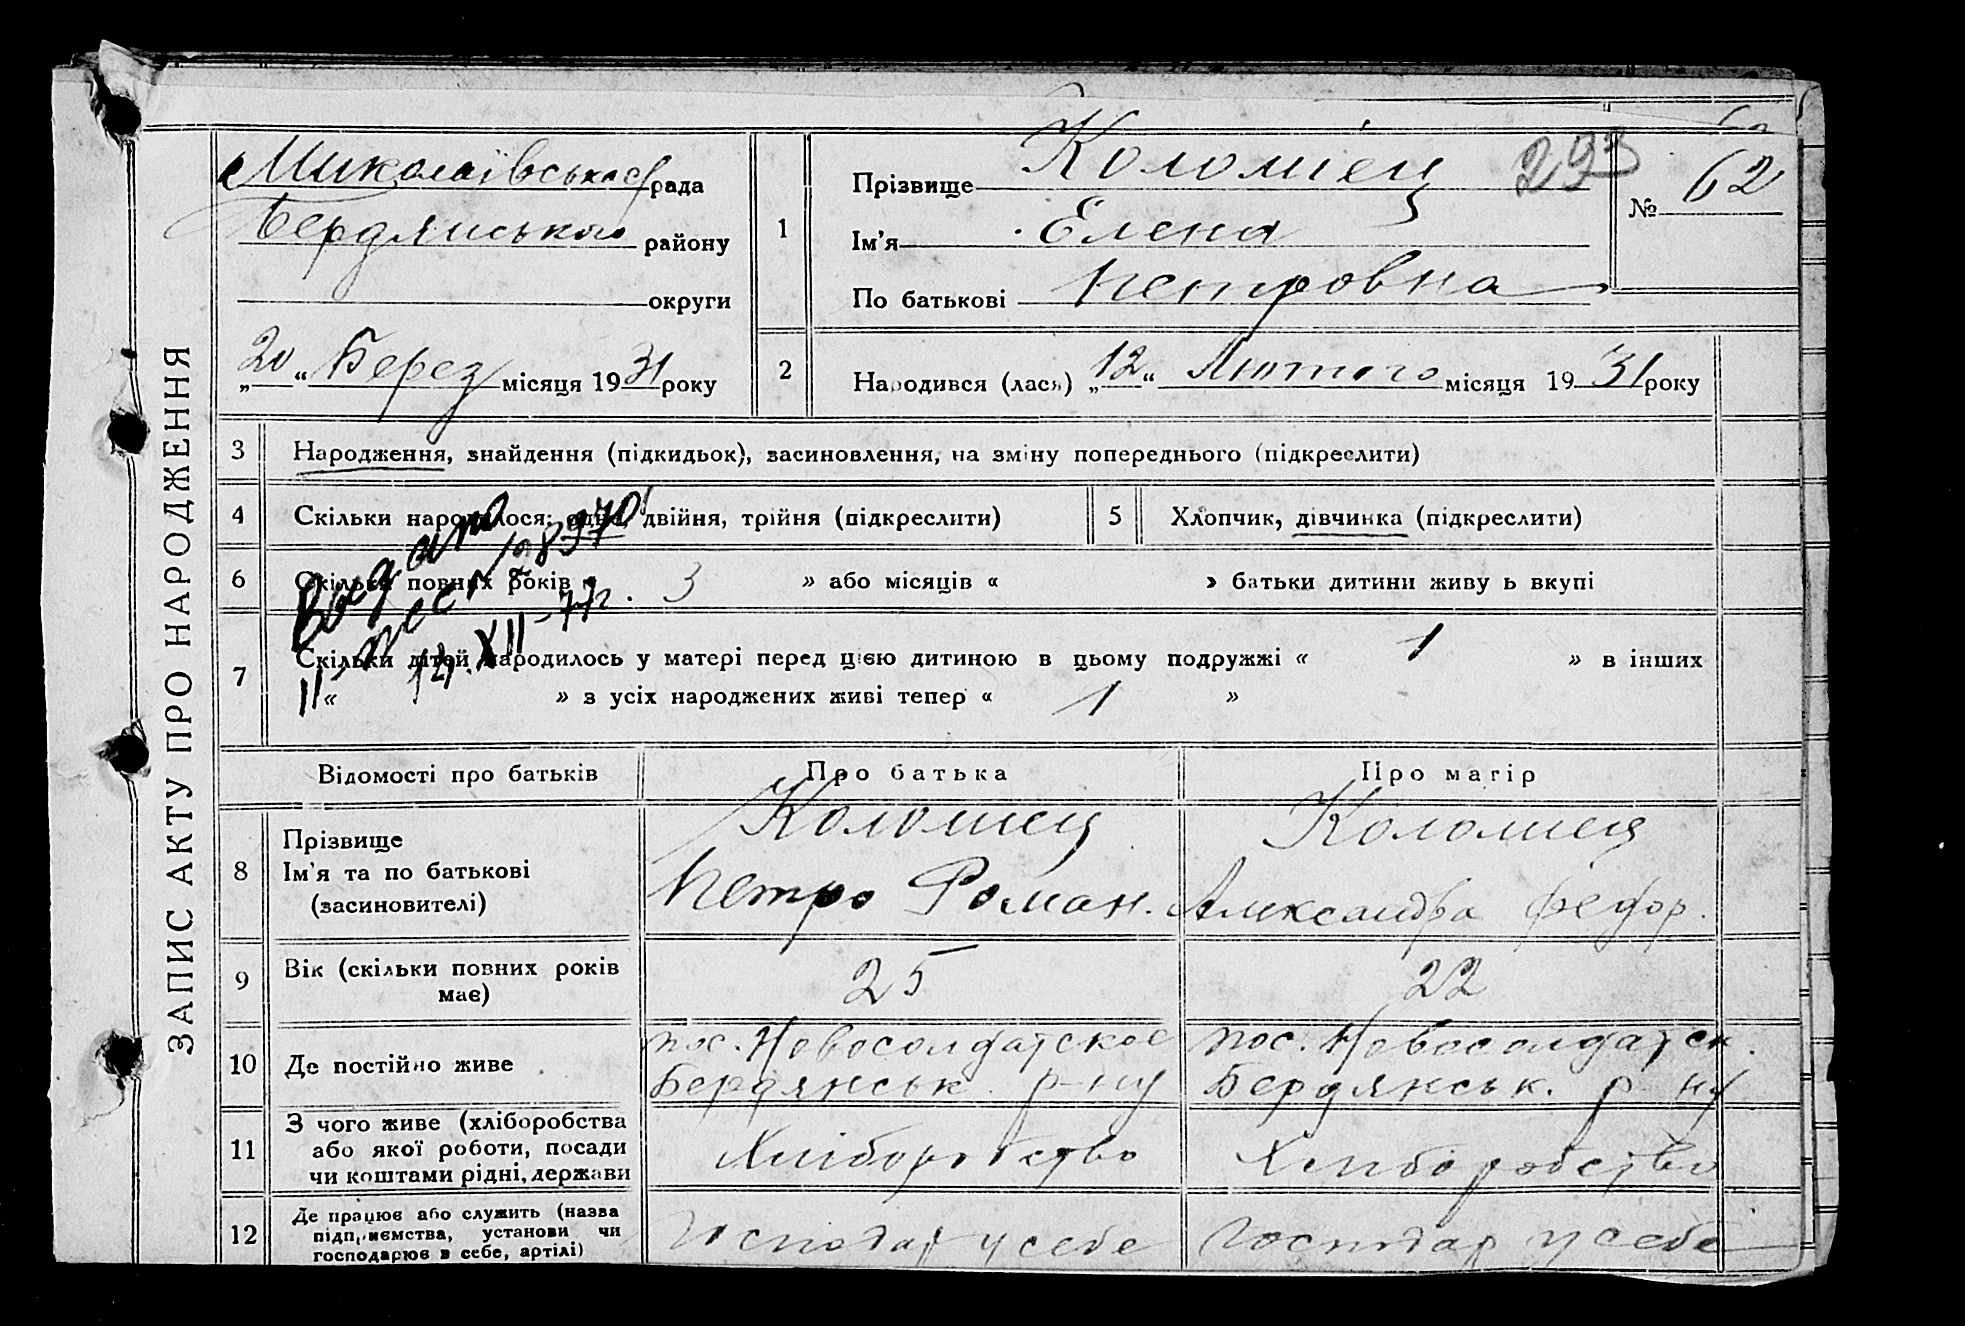 ЗАПИС АКТУ ПРО НАРОДЖЕННЯ
Миколаївська с/рада
Бердянського району
округи
„20“ Берез місяця 1931 року
1
Прізвище Коломієц
Ім'я Елена
По батькові Петровна
293
№ 62
2
Народився (лась) „12“ Лютого місяця 1931 року
3 Народження, знайдення (підкидьок), засиновлення, на зміну попереднього (підкреслити)
4 Скільки народилося: одне, двійня, трійня (підкреслити)
5 Хлопчик, дівчинка (підкреслити)
6 Скільки повних років « 3 » або місяців « » батьки дитини живуть вкупі
7 Скільки дітей народилось у матері перед цією дитиною в цьому подружжі « 1 » в інших
« » з усіх народжених живі тепер « 1 »
14.XII-77г.
Відомості про батьків
Про батька
Про матір
8 Прізвище
Ім'я та по батькові
(засиновителі)
Коломиец
Петро Роман.
Коломиец
Александра Федор.
9 Вік (скільки повних років
має)
25
22
10 Де постійно живе
пос. Новосолдатское
Бердянськ. р-ну
пос. Новосолдатск.
Бердянськ. р ну
11 З чого живе (хліборобства
або якої роботи, посади
чи коштами рідні, держави
Хліборобство
Хліборобство
12 Де працює або служить (назва
підприємства, установи чи
господарює в себе, артілі)
Господар у себе
Господар у себе